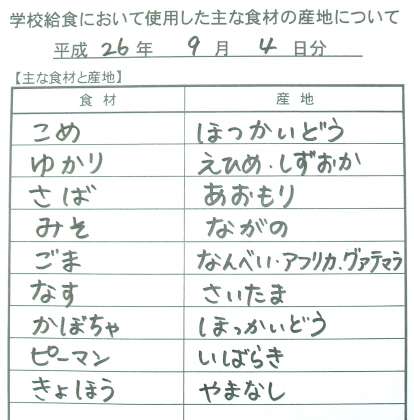 学校給食において使用した主な食材の産地について
平成 26 年 9 月 4 日分
【主な食材と産地】
食材 産地
こめ ほっかいどう
ゆかり えひめ・しずおか
さば あおもり
みそ ながの
ごま なんべい・アフリカ、グァテマラ
なす さいたま
かぼちゃ ほっかいどう
ピーマン いばらき
きょほう やまなし